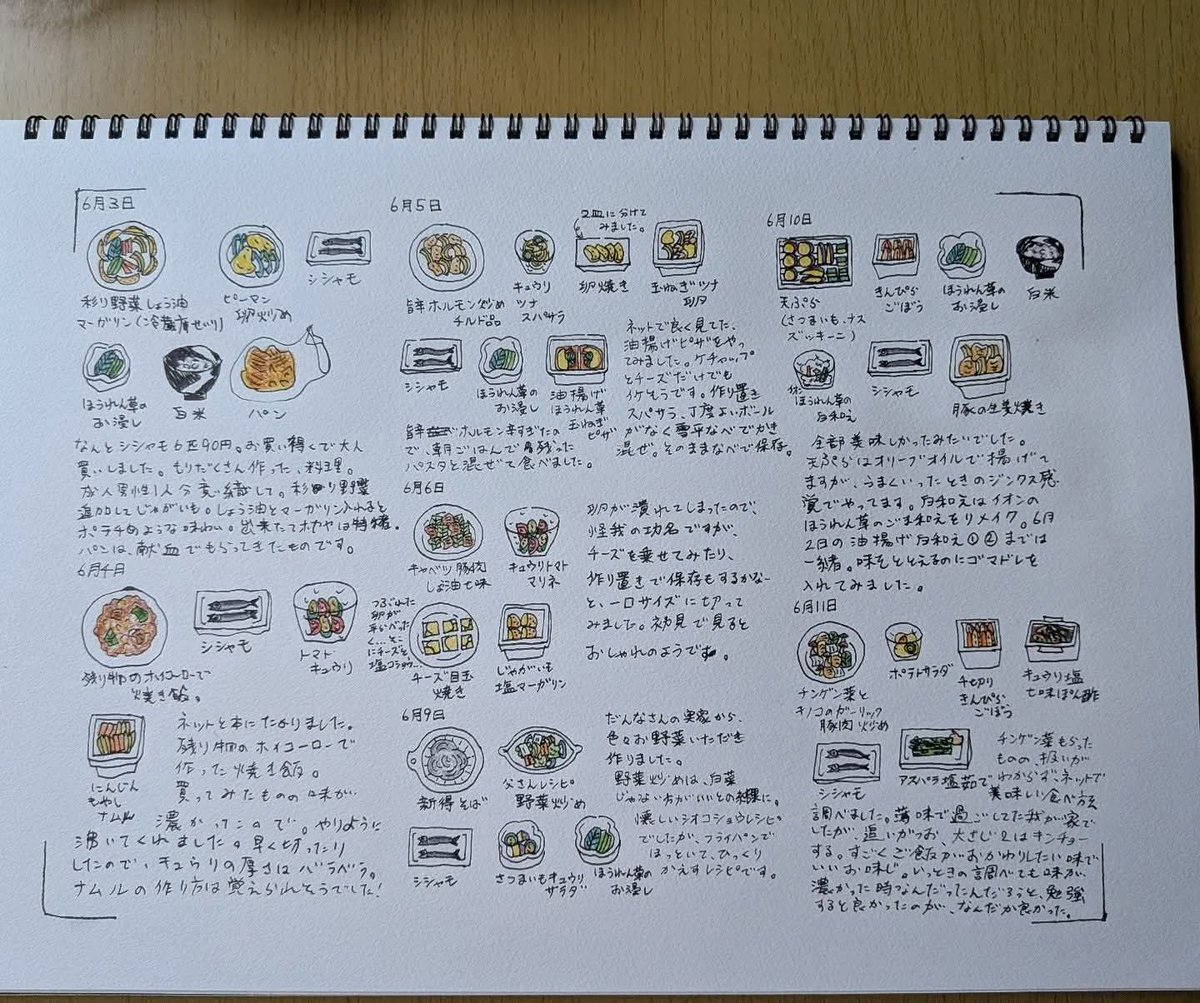 6月3日
彩り野菜しょう油
マーガリン(冷蔵庫ぜいり)
ピーマン
卵炒め
シシャモ
ほうれん草の
お浸し
白米
パン
なんとシシャモ6匹90円。お買い得くで大人
買いしました。もりだくさん作った、料理。
成人男性1人分
追加してじゃがいも。しょう油とマーガリン入れると
ポテチのような味わい。出来たてホカホカは特権。
パンは、献血でもらってきたものです。
6月4日
残り物のホイコーローで
焼き飯。
シシャモ
トマト
キュウリ
にんじん
もやし
ナムル
ネットと本にたよりました。
残り物のホイコーローで
作った焼き飯。
買ってみたものの味が
濃かったので。やりように
沸いてくれました。早く切ったり
したので、キュウリの厚さはバラバラ。
ナムルの作り方は覚えられそうでした!
6月5日
旨辛ホルモン炒め
チルド品
キュウリ
ツナ
スパサラ
2皿に分けて
みました。
卵焼き
玉ねぎツナ
卵
シシャモ
ほうれん草の
お浸し
油揚げ
ほうれん草
玉ねぎ
ピザ
旨辛ホルモン辛すぎたの
で、朝ごはんで残った
パスタと混ぜて食べました。
ネットで良く見てた、
油揚げピザをやっ
てみました。ケチャップ
とチーズだけでも
イケそうです。作り置き
スパサラ、丁度よいボール
がなく雪平なべでかき
混ぜ。そのままなべで保存。
6月6日
キャベツ豚肉
しょ油七味
キュウリトマト
マリネ
つぶれた
卵が
平かべった
く…。そこ
にチーズと
塩コショウ…
チーズ目玉
焼き
じゃがいも
塩マーガリン
卵が潰れてしまったので、
怪我の功名ですが、
チーズを乗せてみたり、
作り置きで保存もするかな〜
と、一口サイズに切って
みました。初見で見ると
おしゃれのようです。
6月9日
新得そば
父さんレシピ
野菜炒め
シシャモ
さつまいもキュウリ
サラダ
ほうれん草の
お浸し
だんなさんの実家から、
色々お野菜いただき
作りました。
野菜炒めは、白菜
じゃないおがいいとの結果に。
懐しいシオコショウレシピ
でしたが、フライパンで
ほっといて、ひっくり
かえすレシピです。
6月10日
天ぷら
(さつまいも、ナス
ズッキーニ)
きんぴら
ごぼう
ほうれん草の
お浸し
白米
ほうれん草の
白和え
シシャモ
豚の生姜焼き
全部美味しかったみたいでした。
天ぷらはオリーブオイルで揚げて
ますが、うまくいったときのジンクス感
覚でやってます。白和えはイオンの
ほうれん草のごま和えをリメイク。6月
2日の油揚げ白和え①②までは
一緒。味をととえるのにゴマドレを
入れてみました。
6月11日
チンゲン菜と
キノコのガーリック
豚肉炒め
ポテトサラダ
千切り
きんぴら
ごぼう
キュウリ塩
七味ぽん酢
シシャモ
アスパラ塩茹で
チンゲン菜もらった
ものの、扱いが
わからず、ネットで
美味しい食べ方
調べました。薄味で過ごしてた我が家で
したが、追いがつお、大さじ2はキンチョー
する。すごくご飯がおかわりしたい味で
いいお味じ。いっときの調べても味が、
濃かった時なんだったんだろうと、勉強
すると良かったのが、なんだか良かった。